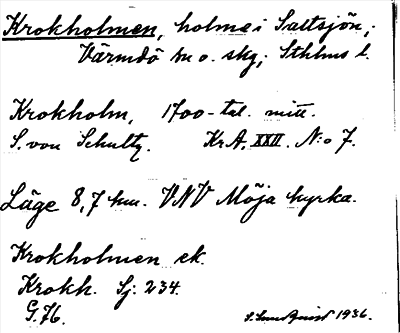 Krokholmen, holme i Saltsjön,
Värmdö sn o. skg; Sthlms l.
Krokholm, 1700-tal. mitt.
S. von Schultz. Kr.A. XXII. N:o 7.
Läge 8,7 km. VNV Möja kyrka.
Krokholmen ek.
Krokh. Sj: 234.
G. 76. 1936.